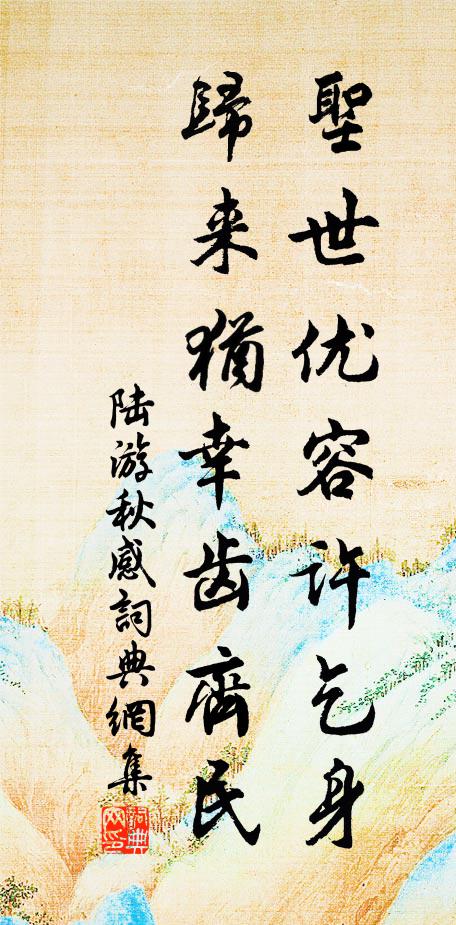 聖世优容许乞身
歸来猶幸齿齊民
陆游秋感詞典網集
詞典